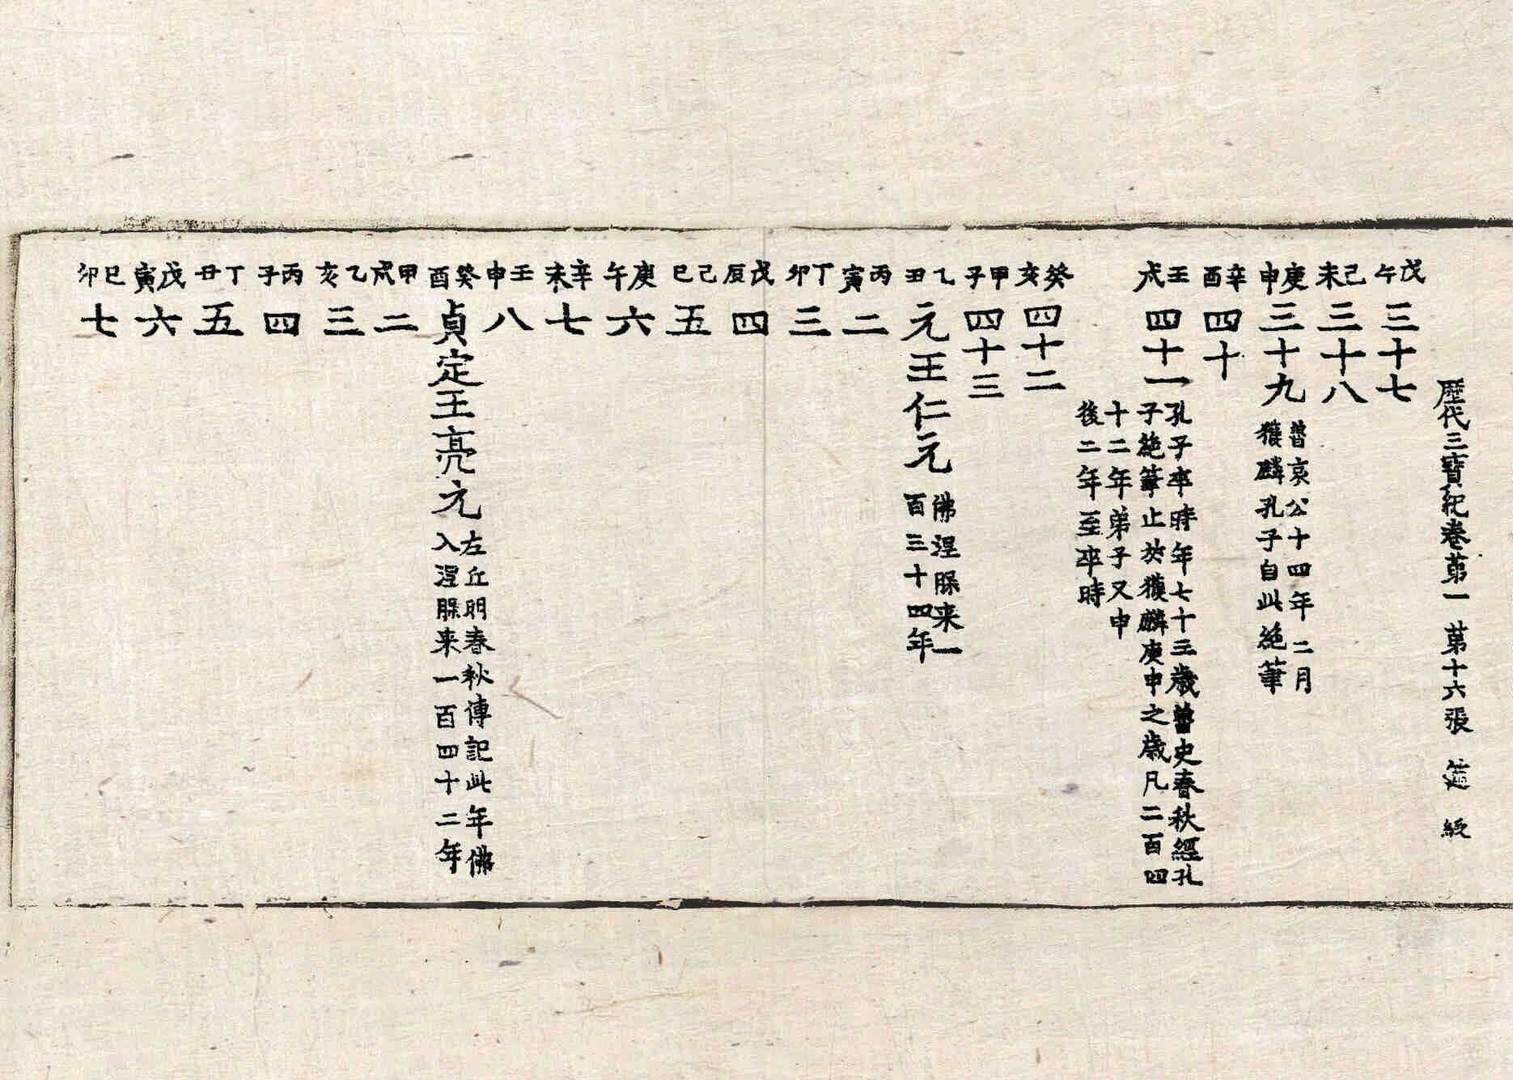 歷代三寳紀卷苐一 苐十六張 筵
戊午 三十七
己未 三十八
庚申 三十九 魯哀公十四年二月
獲麟孔子自此絶筆
辛酉 四十
壬戌 四十一 孔子卒時年七十三歲魯史春秋經孔
子絶筆止於獲麟庚申之歲凡二百四
十二年弟子又申
後二年至卒時
癸亥 四十二
甲子 四十三
乙丑 元王仁元 佛涅槃来一
百三十四年
丙寅 二
丁卯 三
戊辰 四
己巳 五
庚午 六
辛未 七
壬申 八
癸酉 貞定王亮元 左丘明春秋傳記此年佛
入涅槃来一百四十二年
甲戌 二
乙亥 三
丙子 四
丁丑 五
戊寅 六
己卯 七